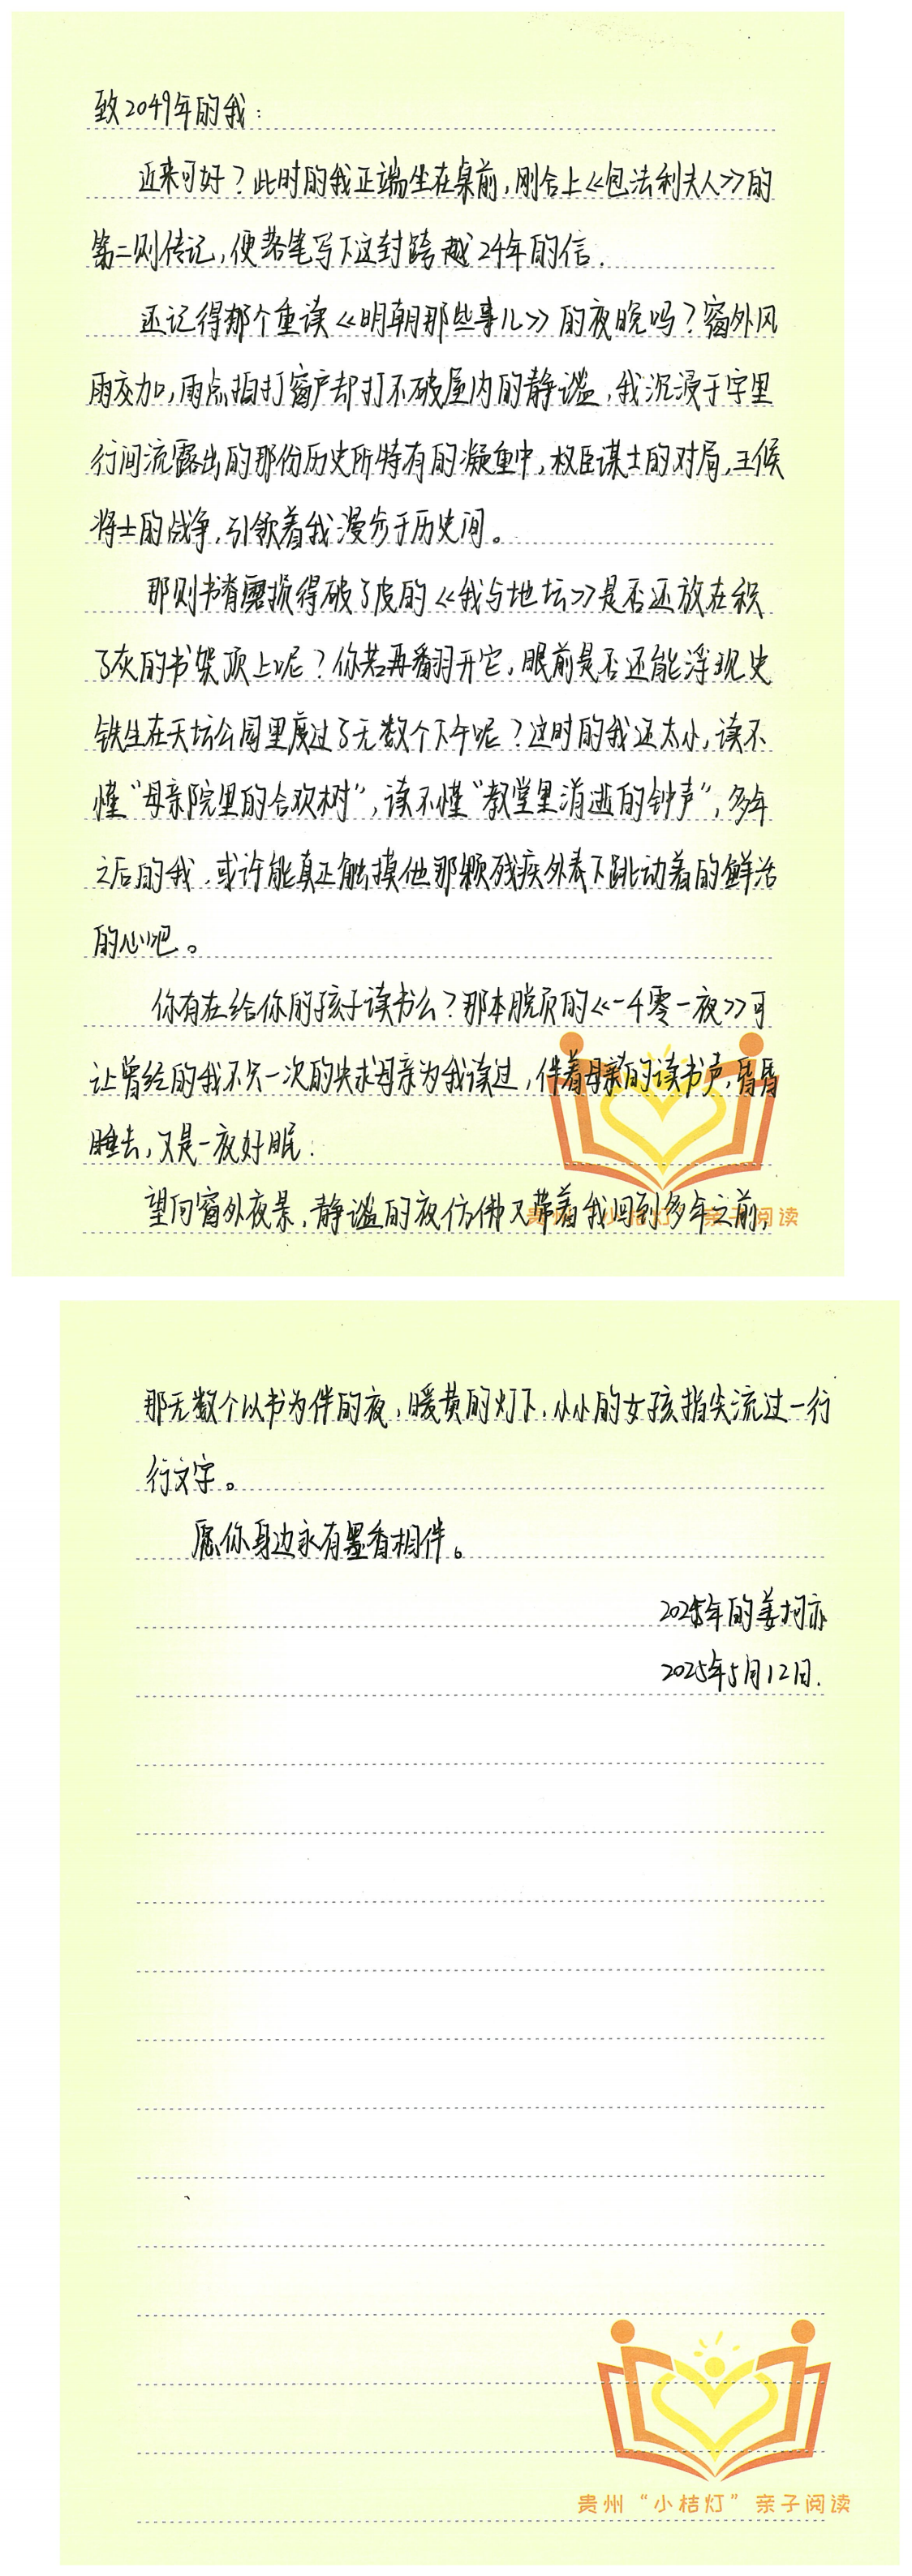 致2049年的我：
近来可好？此时的我正端坐在桌前，刚合上《包法利夫人》的
第二则传记，便落笔写下这封跨越24年的信.
还记得那个重读《明朝那些事儿》的夜晚吗？窗外风
雨交加，雨点拍打窗户却打不破屋内的静谧，我沉浸于字里
行间流露出的那份历史所特有的凝重中，权臣谋士的对局，王候
将士的战争，引领着我漫步于历史间。
那则书脊磨损得破了皮的《我与地坛》是否还放在积
了灰的书架顶上呢？你若再翻开它，眼前是否还能浮现史
铁生在天坛公园里度过了无数个下午呢？这时的我还太小，读不
懂“母亲院里的合欢树”，读不懂“教堂里消逝的钟声”，多年
之后的我，或许能真正触摸他那颗残疾外表下跳动着的鲜活
的心吧。
你有在给你的孩子读书么？那本脱页的《一千零一夜》可
让曾经的我不只一次的央求母亲为我读过，伴着母亲的读书声，昏昏
睡去，又是一夜好眠.
望向窗外夜景，静谧的夜仿佛又带着我回到多年之前，
贵州“小桔灯”亲子阅读
那无数个以书为伴的夜，暖黄的灯下，小小的女孩指尖流过一行
行文字。
愿你身边永有墨香相伴。
2025年的姜珂亦
2025年5月12日.
贵州“小桔灯”亲子阅读